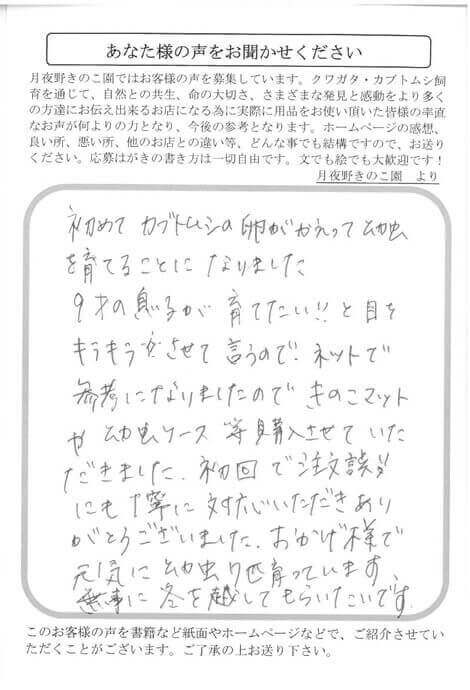 あなた様の声をお聞かせください
月夜野きのこ園ではお客様の声を募集しています。クワガタ・カブトムシ飼
育を通じて、自然との共生、命の大切さ、さまざまな発見と感動をより多く
の方達にお伝え出来るお店になる為に実際に用品をお使い頂いた皆様の率直
なお声が何よりの力となり、今後の参考となります。ホームページの感想、
良い所、悪い所、他のお店との違い等、どんな事でも結構ですので、お送り
ください。応募はがきの書き方は一切自由です。文でも絵でも大歓迎です！
月夜野きのこ園　より
初めて カブトムシの卵がかえって幼虫
を育てることに なりました
9才の息子が 育てたい!! と目を
キラキラさせて言うので、ネットで
参考になりましたので きのこマット
や 幼虫ケース 等購入させていた
だきました。初回で注文誤り
にも丁寧に対応いただきあり
がとうございました。おかげ様で
元気に幼虫9匹育っています。
無事に冬を越してもらいたいです。
このお客様の声を書籍など紙面やホームページなどで、ご紹介させてい
ただくことがございます。ご了承の上お送り下さい。